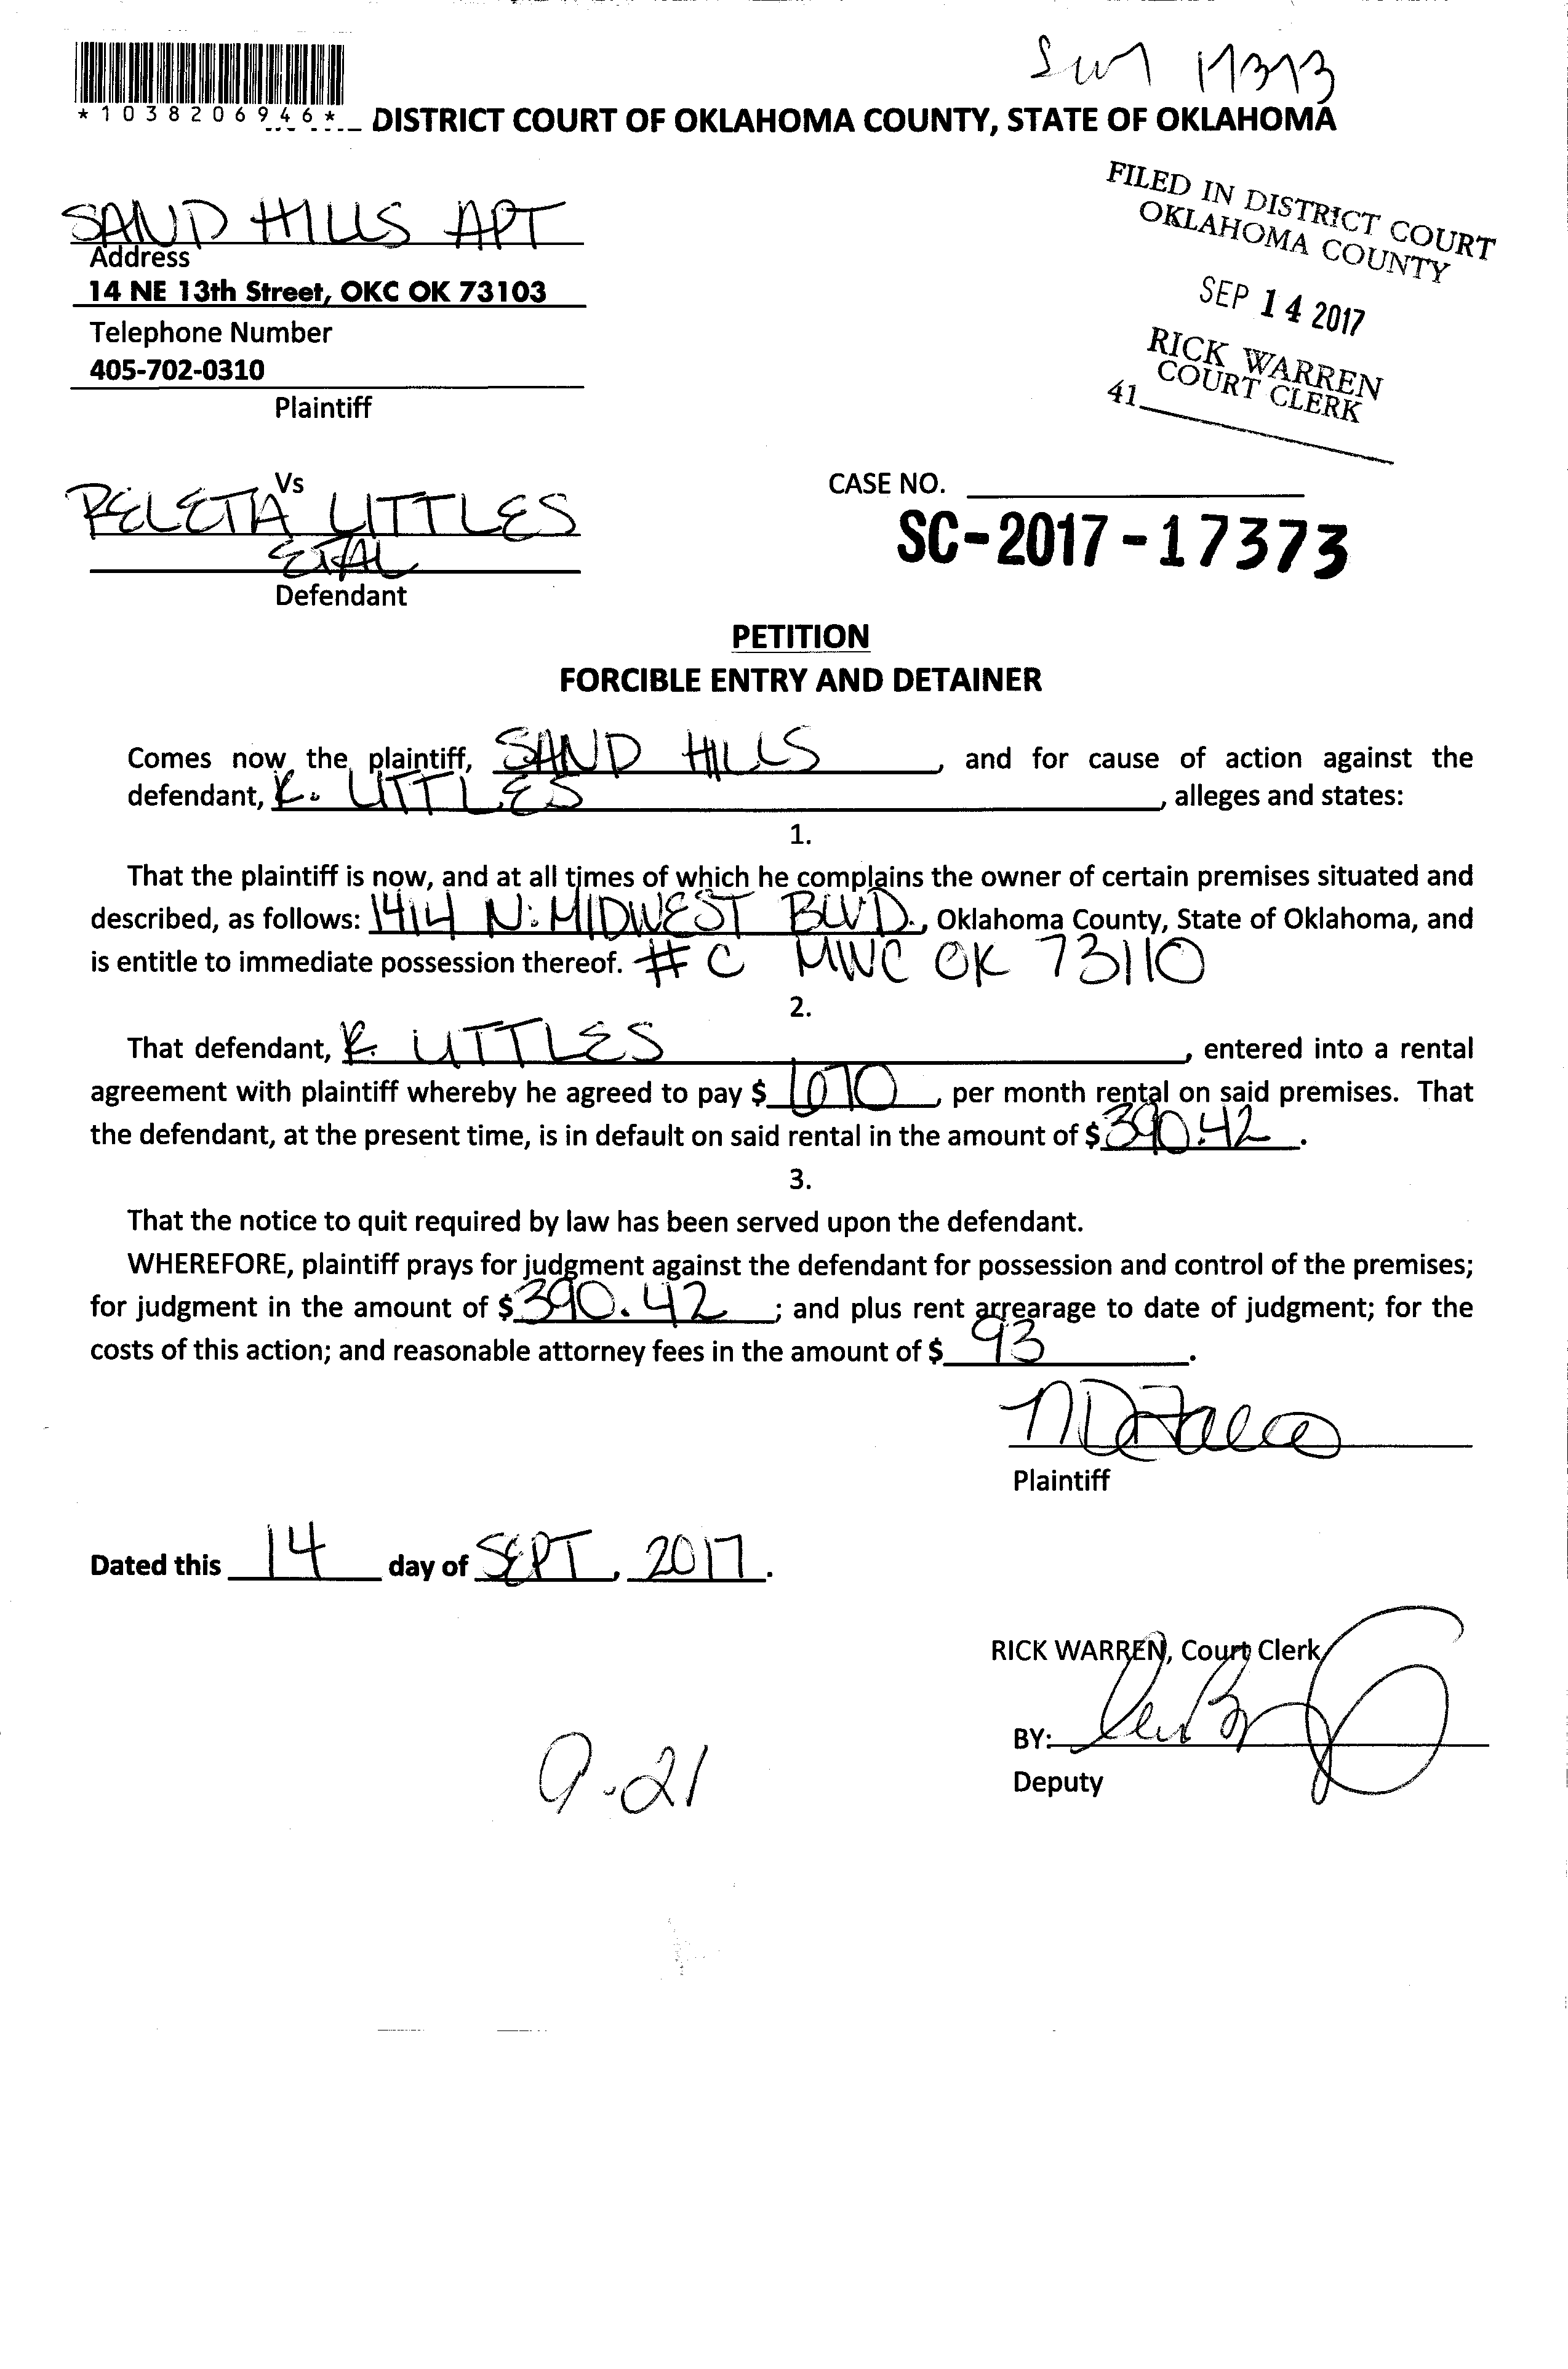 *1038206946*
DISTRICT COURT OF OKLAHOMA COUNTY, STATE OF OKLAHOMA
SAND HILLS APT
Address
14 NE 13th Street, OKC OK 73103
Telephone Number
405-702-0310
Plaintiff
FILED IN DISTRICT COURT
OKLAHOMA COUNTY
SEP 14 2017
RICK WARREN
COURT CLERK
41
Vs
RELETA LITTLES
ETAL
Defendant
CASE NO.
SC-2017-17373
PETITION
FORCIBLE ENTRY AND DETAINER
Comes now the plaintiff, SAND HILLS, and for cause of action against the
defendant, R. LITTLES, alleges and states:
1.
That the plaintiff is now, and at all times of which he complains the owner of certain premises situated and
described, as follows: 1414 N. MIDWEST BLVD., Oklahoma County, State of Oklahoma, and
is entitle to immediate possession thereof. # C MWC OK 73110
2.
That defendant, R. LITTLES, entered into a rental
agreement with plaintiff whereby he agreed to pay $ 670, per month rental on said premises. That
the defendant, at the present time, is in default on said rental in the amount of $ 390.42.
3.
That the notice to quit required by law has been served upon the defendant.
WHEREFORE, plaintiff prays for judgment against the defendant for possession and control of the premises;
for judgment in the amount of $ 390.42; and plus rent arrearage to date of judgment; for the
costs of this action; and reasonable attorney fees in the amount of $ 93.
Plaintiff
Dated this 14 day of SEPT, 2017.
RICK WARREN, Court Clerk
BY:
Deputy
9-21